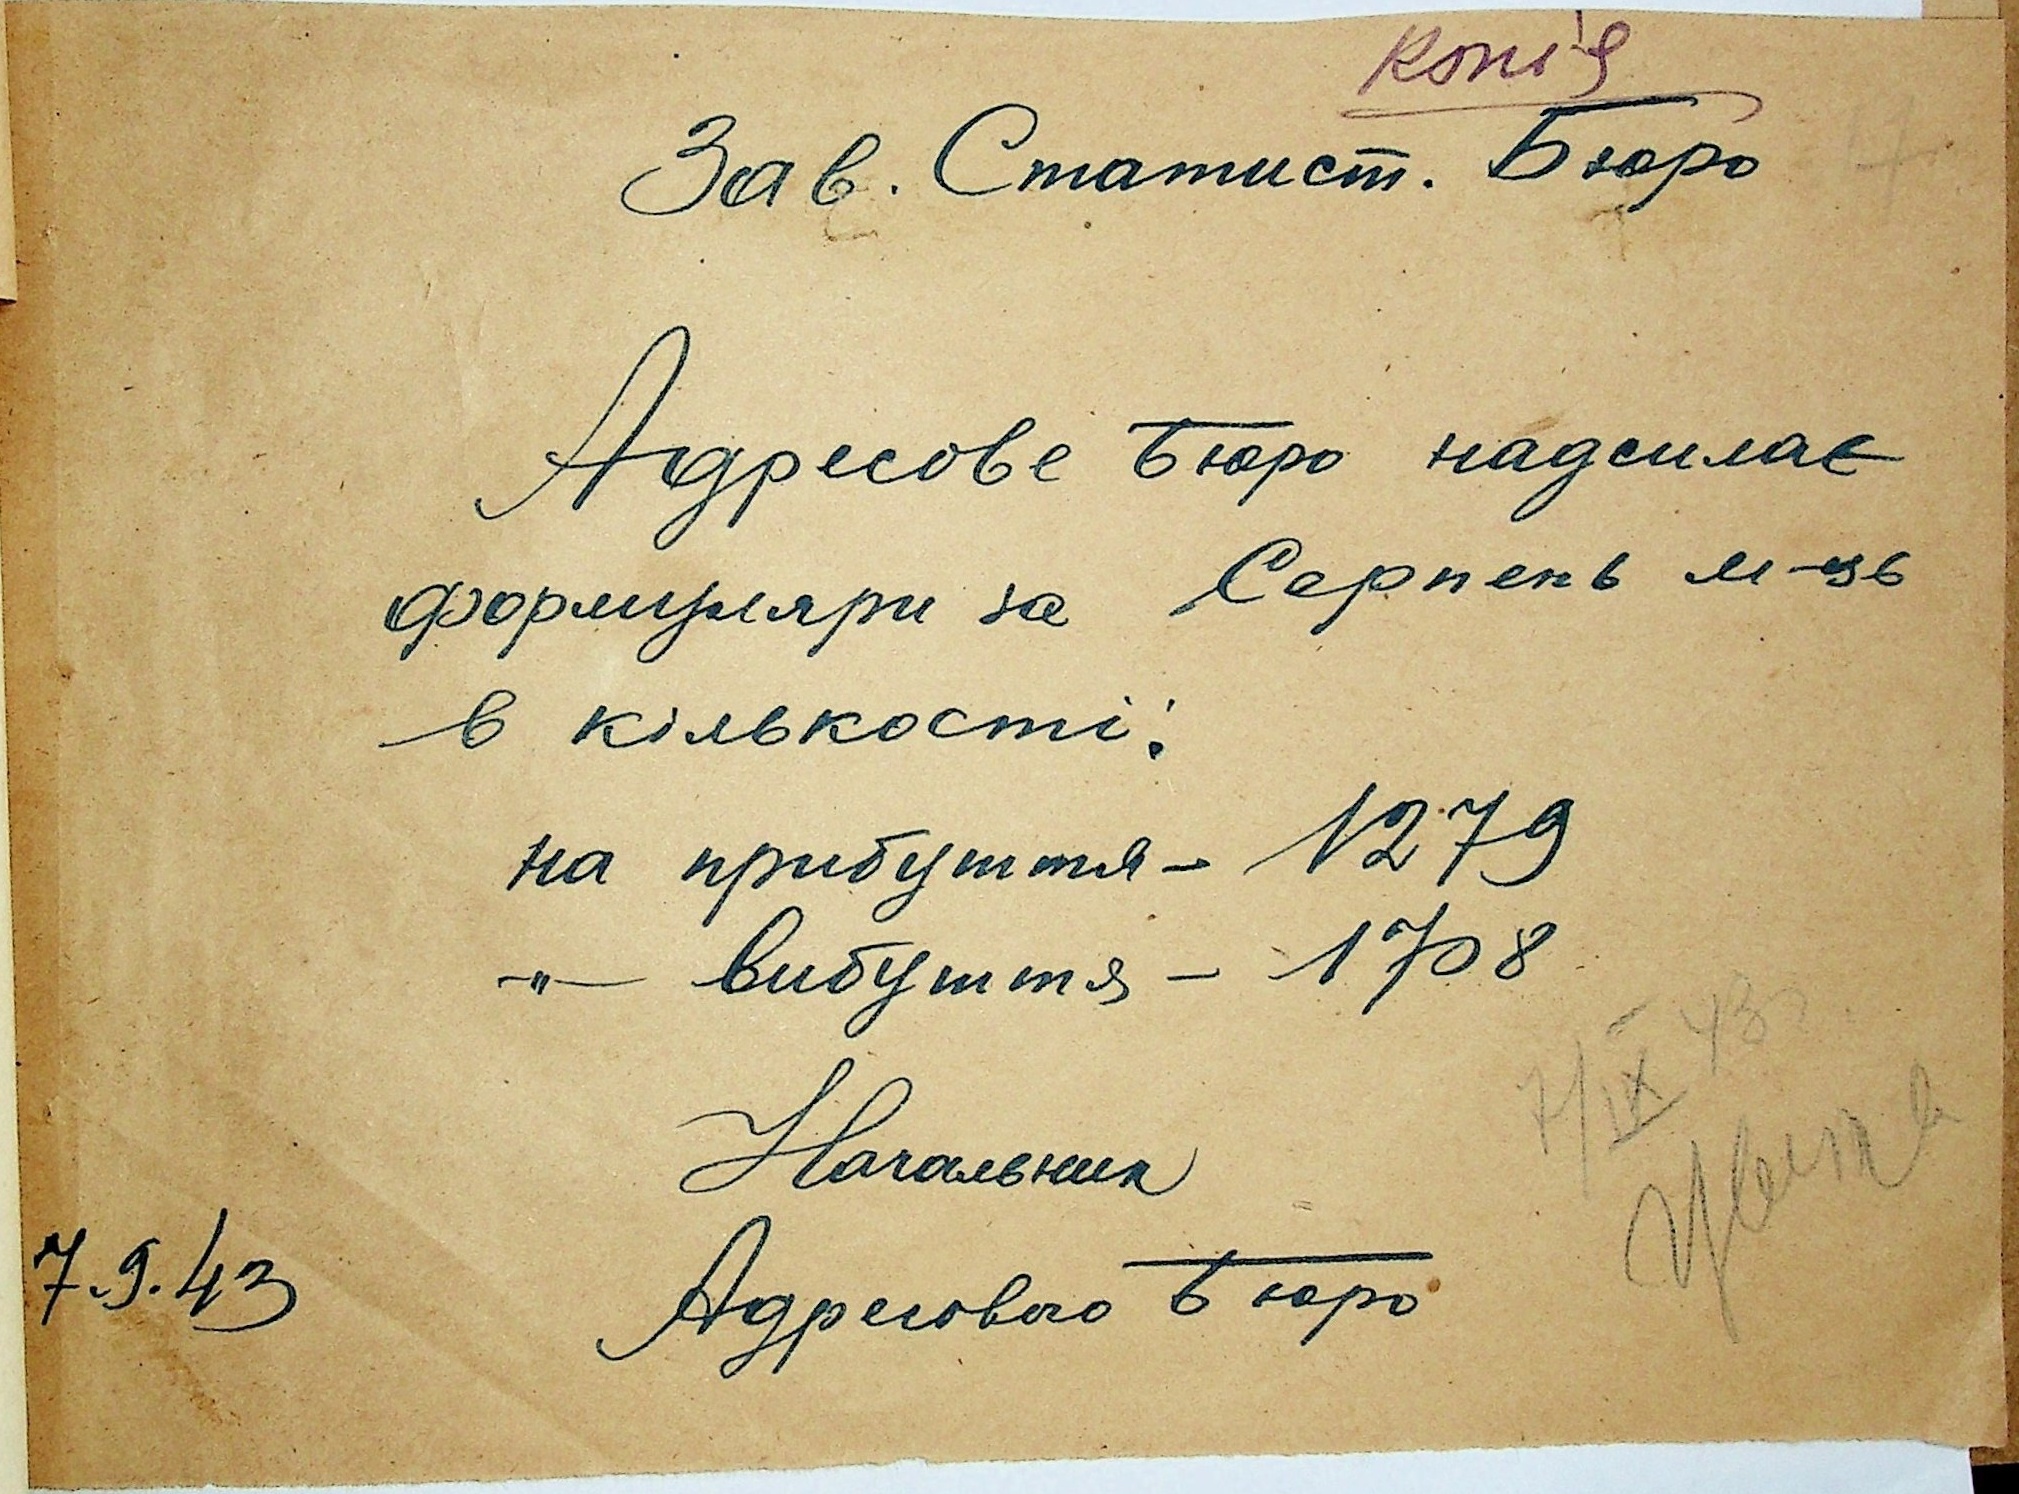 Копія
Зав. Статист. Бюро
Адресове Бюро надсилає
формуляри за Серпень м-ць
в кількості:
на прибуття - 1279
-"- вибуття - 1708
Начальник
7.9.43 Адресового Бюро
7/IX 43 г.